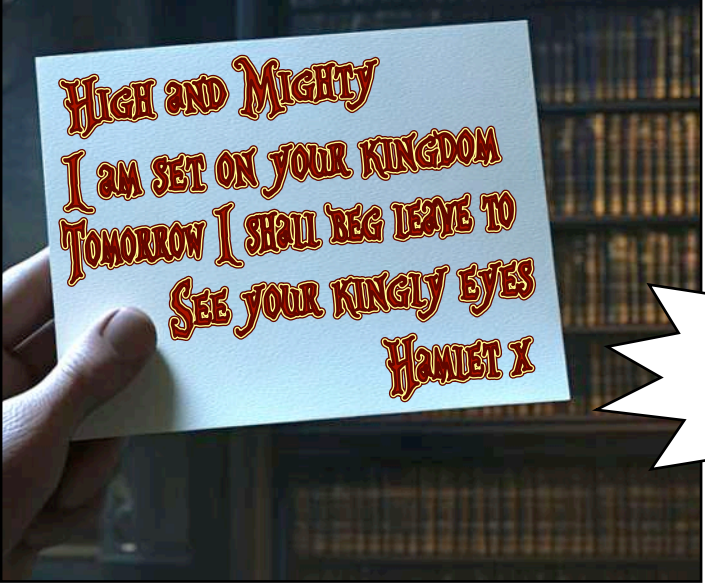 High and Mighty
I am set on your kingdom
Tomorrow I shall beg leave to
See your kingly eyes
Hamlet x